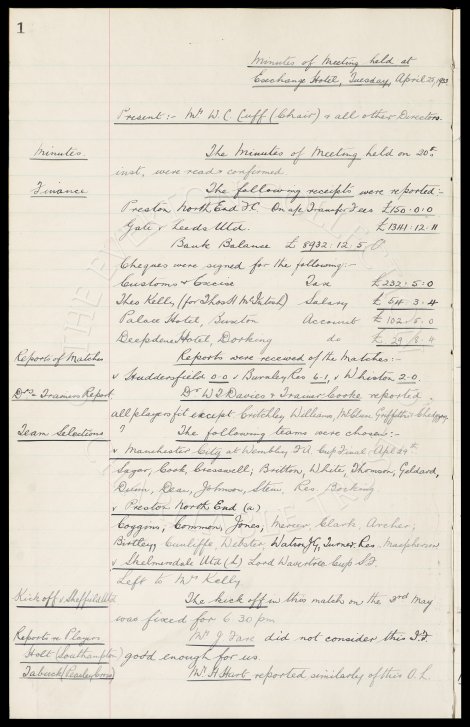 1
Minutes of Meeting held at
Exchange Hotel, Tuesday, April 25, 1933
Present:- Mr W. C. Cuff (Chair) & all other Directors.
Minutes The Minutes of Meeting held on 20th
inst, were read & confirmed
Finance The following receipts were reported:-
Preston North End F.C. On a/c Transfer Fees £150.0.0
Gate v Leeds Utd. £1341.12.11
Bank Balance £8932.12.5
Cheques were signed for the following:-
Customs & Excise Tax £232.5.0
Theo Kelly, (for Thos H McIntosh) Salary £54.3.4
Palace Hotel, Buxton Account £102.5.0
Deepdene Hotel, Dorking do £29.8.4
Reports of Matches Reports were received of the Matches:-
v Huddersfield 0.0 v Burnley Res 6-1, v Whiston 2.0
Drs & Trainers Report Dr W. I. Davies & Trainer Cooke reported
all players fit except Critchley, Williams, McGluen, Griffiths &
Team Selections ? The following teams were chosen:-
v Manchester City at Wembley F.A. Cup Final Apl 29th
Sagar, Cook, Cresswell, Britton, White, Thomson, Geldard,
Dunn, Dean, Johnson, Stein, Res Bocking
v Preston North End (a)
Coggins, Common, Jones, Mercer, Clark, Archer,
Birtley, Cunliffe, Webster, Watson J.G, Turner. Res. Macpherson
v Skelmersdale Utd (L) Lord Wavertree Cup S.F.
Left to Mr Kelly
Kick off v Sheffield Utd The kick off in this match on the 3rd May
was fixed for 6.30 pm
Reports re Players Mr J. Fare did not consider this I.F.
Holt (Southampton) good enough for us.
Mr H Hart reported similarly of this O.L.